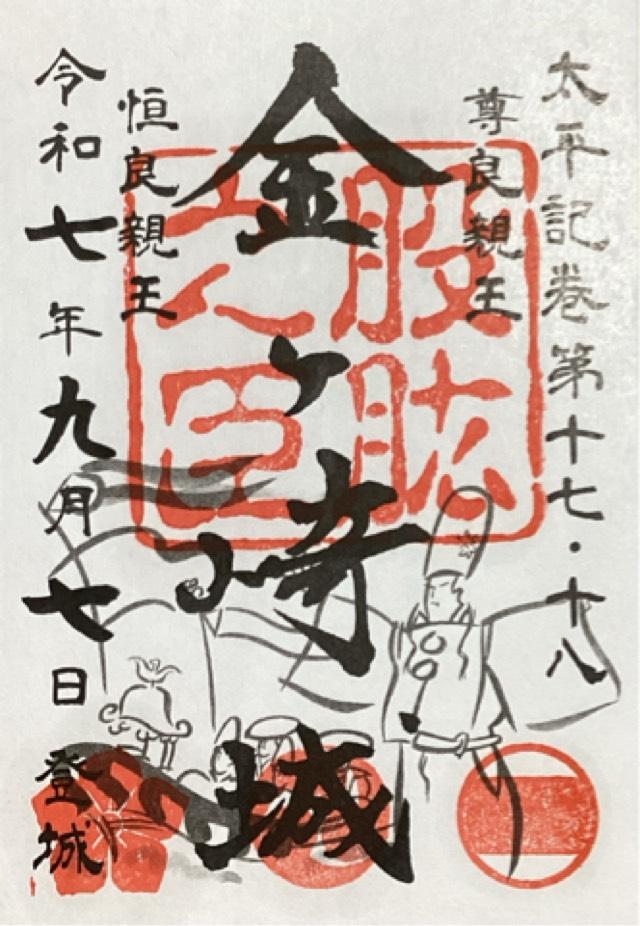 太平記巻第十七・十八
尊良親王
金ヶ崎城
恒良親王
令和七年九月七日登城
股肱
之臣